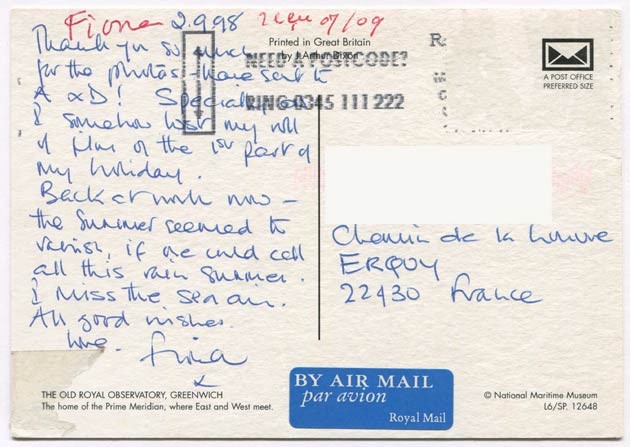 Fiona 2.9.98 reçu 07/09
Thank you so much
for the photos - have sent to
A & D! Specially as
I somehow lost my roll
of film of the 1st part of
my holiday.
Back at work now -
the Summer seemed to
vanish, if one could call
all this rain Summer.
I miss the sea air.
All good wishes.
love. Fiona
x
THE OLD ROYAL OBSERVATORY, GREENWICH
The home of the Prime Meridian, where East and West meet.
Printed in Great Britain
by J. Arthur Dixon
NEED A POSTCODE?
RING 0345 111 222
R
A POST OFFICE
PREFERRED SIZE
Chemin de la
ERQUY
22430 France
BY AIR MAIL
par avion
Royal Mail
© National Maritime Museum
L6/SP. 12648